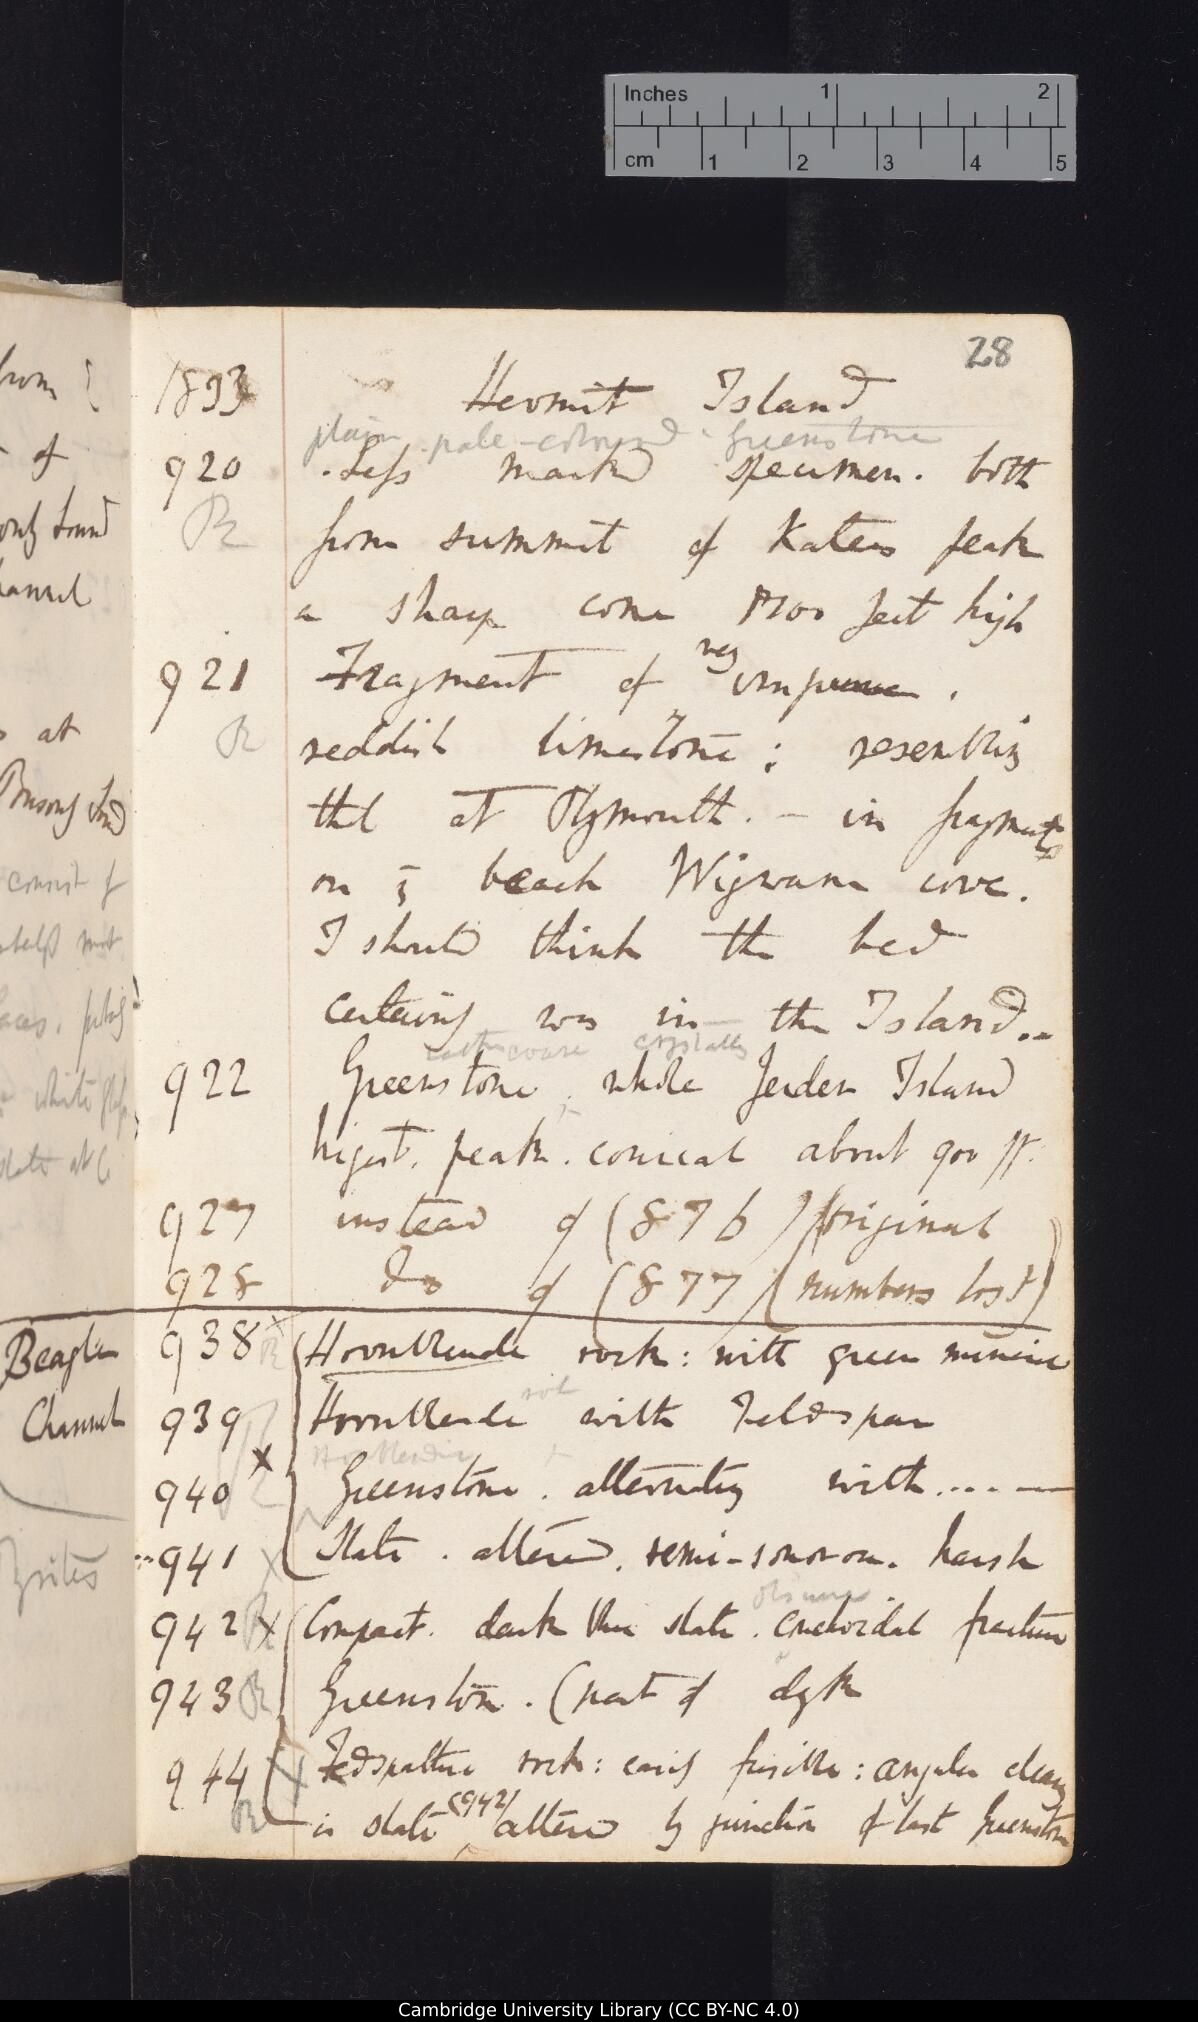 Inches 1 2
cm 1 2 3 4 5
28
1833 Hermit Island
plain pale-coloured Greenstone
920 Less marked specimen. both
R from summit of Katers peak
a sharp cone 1700 feet high
921 Fragment of very impure.
R reddish limestone; resembling
that at Plymouth. – in fragments
on beach Wigwam cove.
I should think the bed
certainly was in the Island. –
rather coarse crystalline
922 Greenstone. whole Jerdan Island
highest. peak. conical about 900 ft.
927 instead of (876) (original
928 Do of (877) (numbers lost)
Beagle
Channel
938 R Hornblende rock: with green mineral
939 Hornblende with Feldspar
Hornblendic
940 x Greenstone. alternating with.... —
941 x Slate. altered. semi-sonorous. harsh
942 R x Compact. dark blue slate. conchoidal fracture
943 R Greenstone. (part of dyke
944 x Fedspathic rock: easily fusible: angular cleavage
R is slate (942) altered by junction of last Greenstone
from
of
only found
Channel
at
consist of
slate at
Cambridge University Library (CC BY-NC 4.0)